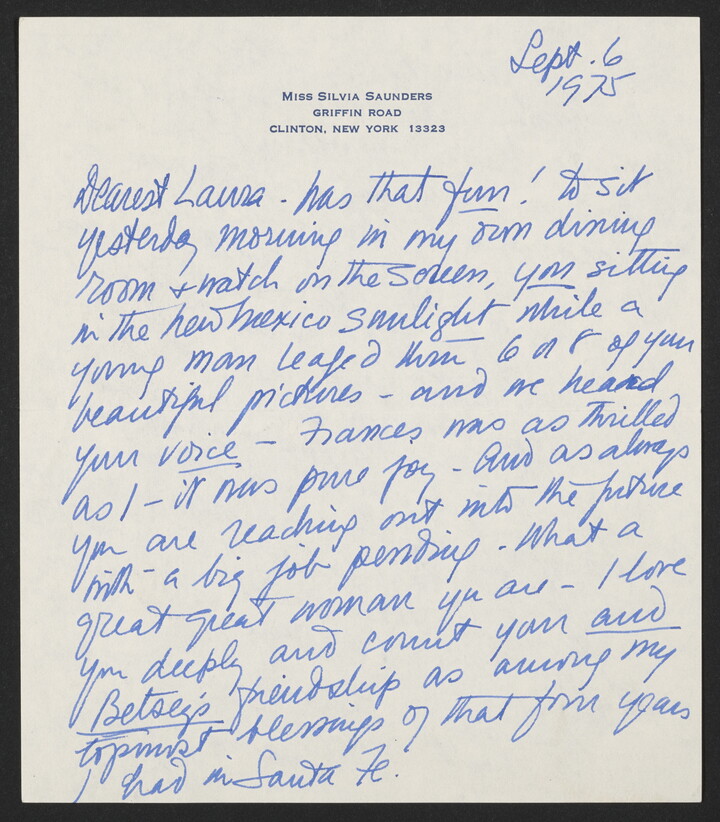 Sept. 6
1975
MISS SILVIA SAUNDERS
GRIFFIN ROAD
CLINTON, NEW YORK 13323
Dearest Laura - was that fun! to sit
yesterday morning in my own dining
room + watch on the screen, you sitting
in the New Mexico sunlight while a
young man leafed thru 6 or 8 of your
beautiful pictures - and we heard
your voice - Frances was as thrilled
as I - it was pure joy - And as always
you are reaching out into the future
with a big job pending. What a
great great woman you are - I love
you deeply and count your and
Betsey's friendship as among my
topmost blessings of that four years
I had in Santa Fe.